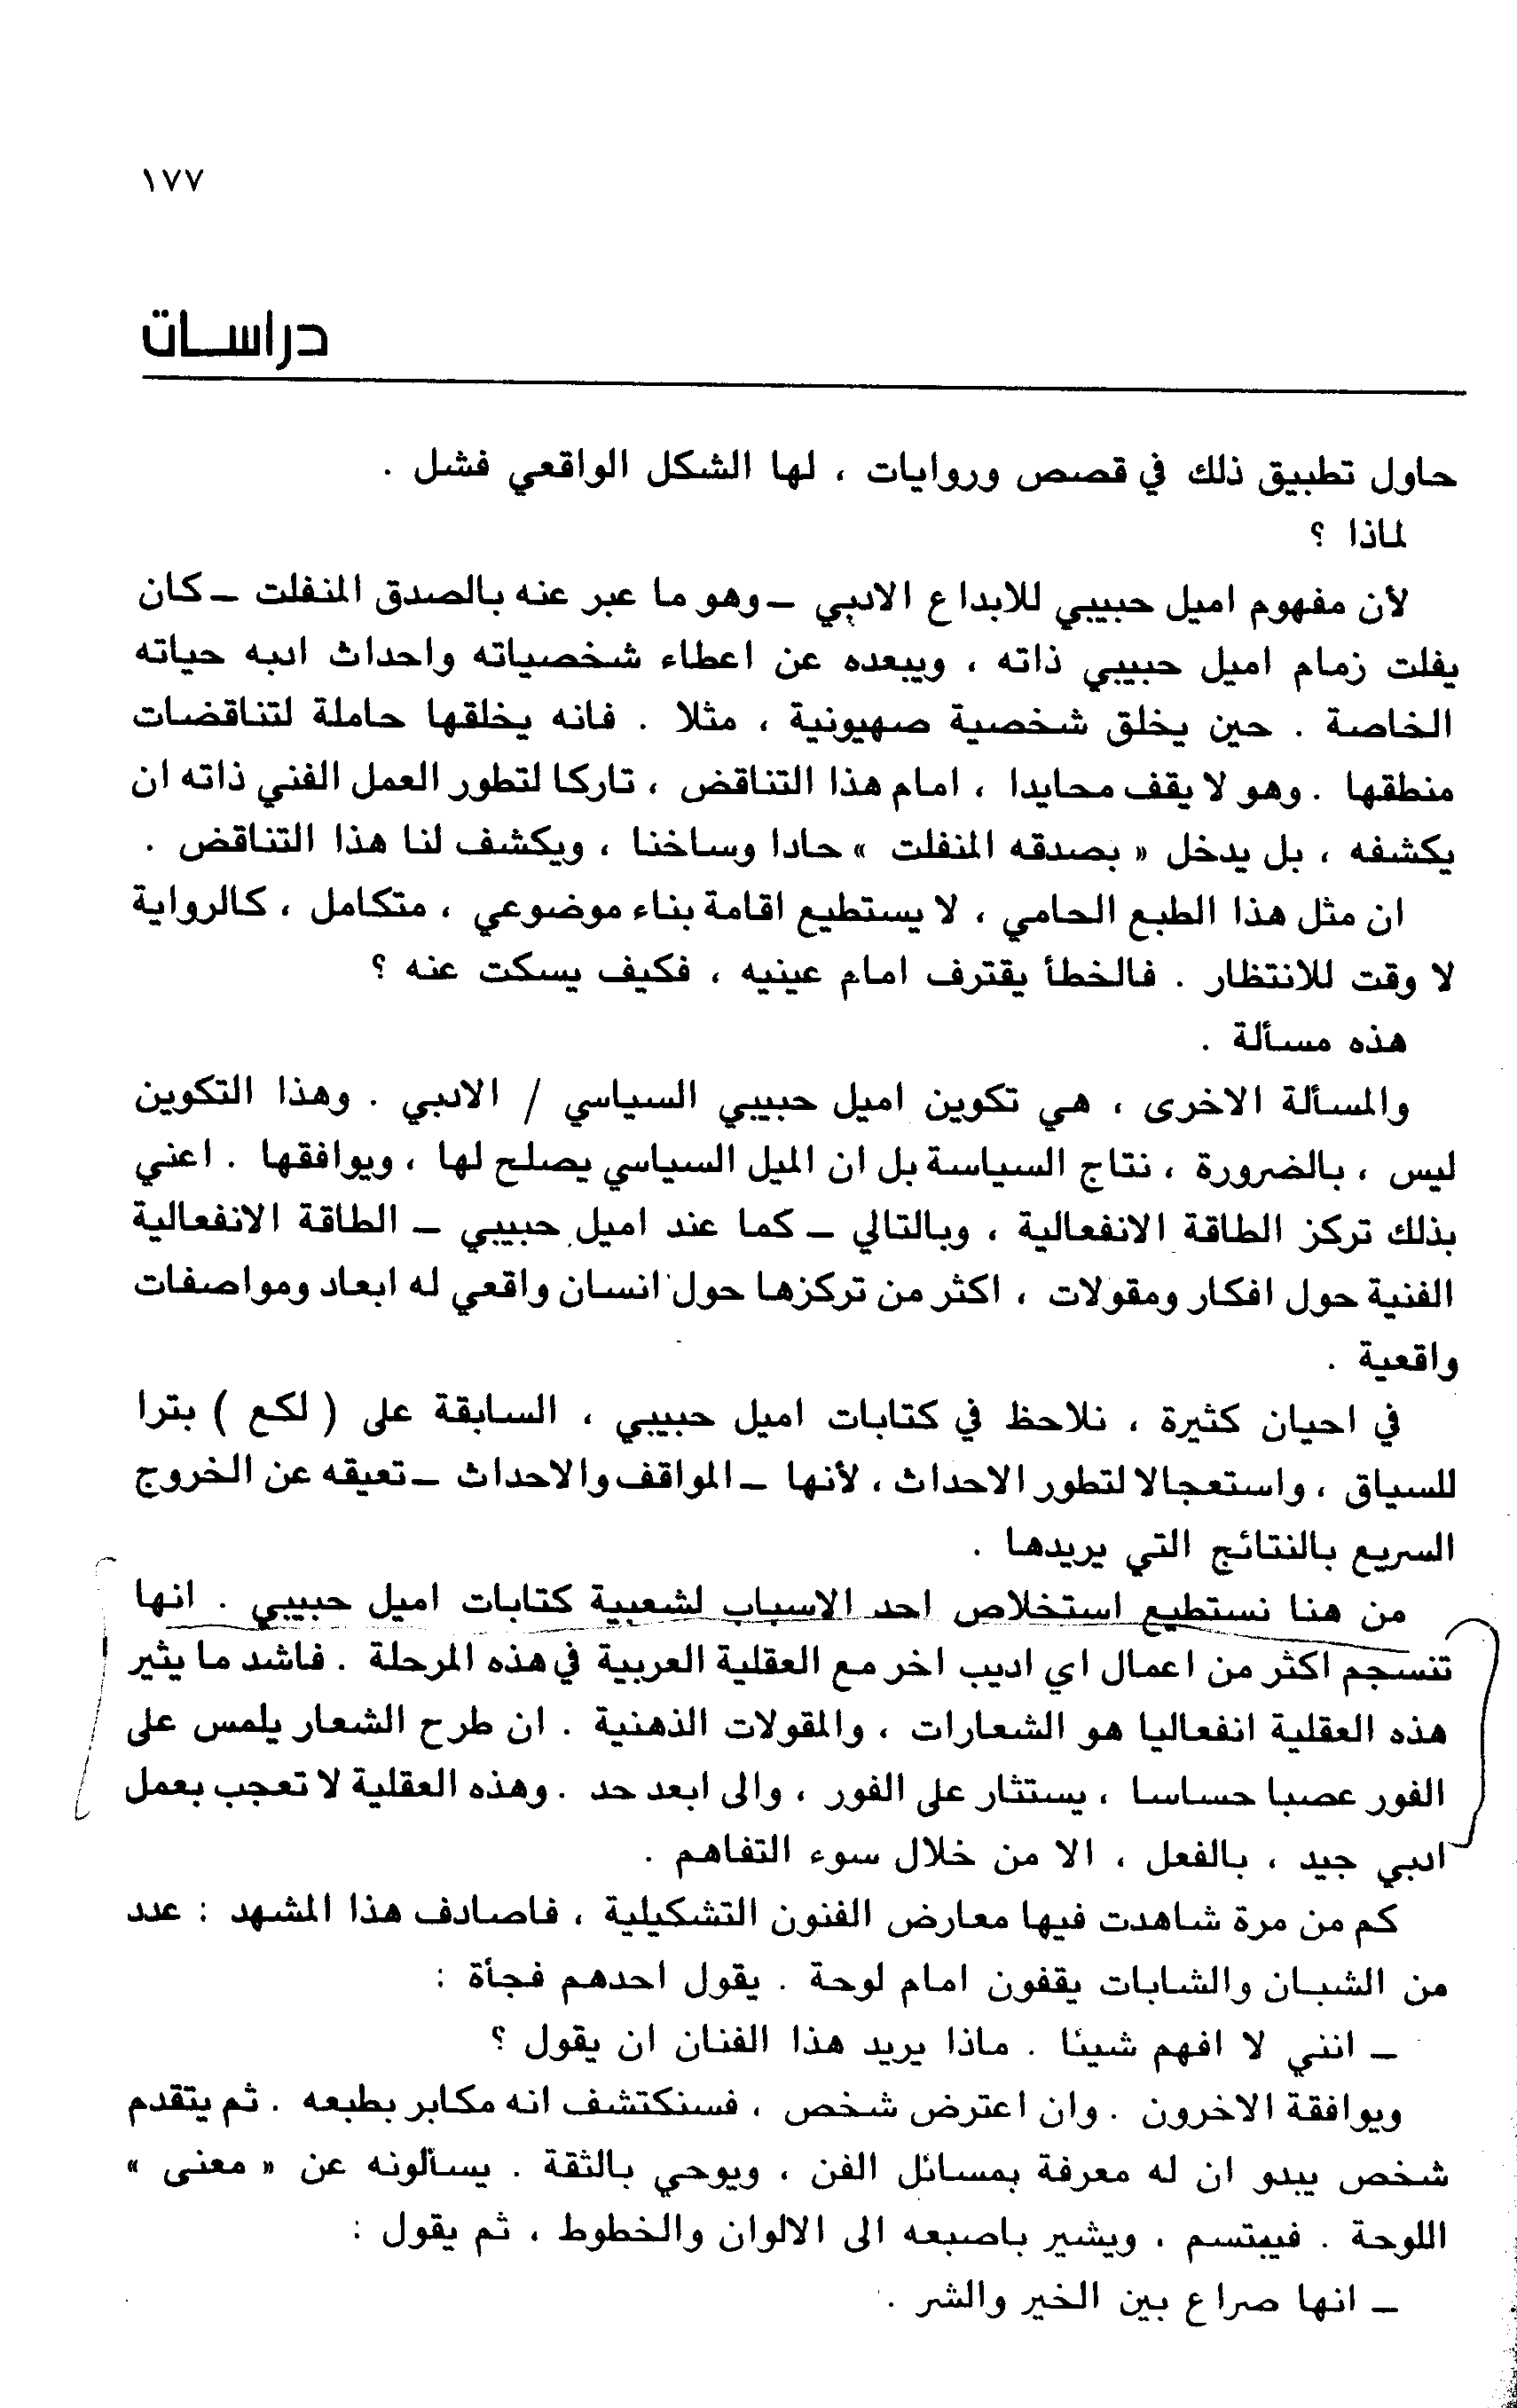 ١٧٧
دراســات
حاول تطبيق ذلك في قصص وروايات ، لها الشكل الواقعي فشل .
لماذا ؟
لأن مفهوم اميل حبيبي للابداع الادبي ــ وهو ما عبر عنه بالصدق المنفلت ــ كان
يفلت زمام اميل حبيبي ذاته ، ويبعده عن اعطاء شخصياته واحداث ادبه حياته
الخاصة . حين يخلق شخصية صهيونية ، مثلا . فانه يخلقها حاملة لتناقضات
منطقها . وهو لا يقف محايدا ، امام هذا التناقض ، تاركا لتطور العمل الفني ذاته ان
يكشفه ، بل يدخل « بصدقه المنفلت » حادا وساخنا ، ويكشف لنا هذا التناقض .
ان مثل هذا الطبع الحامي ، لا يستطيع اقامة بناء موضوعي ، متكامل ، كالرواية
لا وقت للانتظار . فالخطأ يقترف امام عينيه ، فكيف يسكت عنه ؟
هذه مسألة .
والمسألة الاخرى ، هي تكوين اميل حبيبي السياسي / الادبي . وهذا التكوين
ليس ، بالضرورة ، نتاج السياسة بل ان الميل السياسي يصلح لها ، ويوافقها . اعني
بذلك تركز الطاقة الانفعالية ، وبالتالي ــ كما عند اميل حبيبي ــ الطاقة الانفعالية
الفنية حول افكار ومقولات ، اكثر من تركزها حول انسان واقعي له ابعاد ومواصفات
واقعية .
في احيان كثيرة ، نلاحظ في كتابات اميل حبيبي ، السابقة على ( لكع ) بترا
للسياق ، واستعجالا لتطور الاحداث ، لأنها ــ المواقف والاحداث ــ تعيقه عن الخروج
السريع بالنتائج التي يريدها .
من هنا نستطيع استخلاص احد الاسباب لشعبية كتابات اميل حبيبي . انها
تنسجم اكثر من اعمال اي اديب اخر مع العقلية العربية في هذه المرحلة . فاشد ما يثير
هذه العقلية انفعاليا هو الشعارات ، والمقولات الذهنية . ان طرح الشعار يلمس على
الفور عصبا حساسا ، يستثار على الفور ، والى ابعد حد . وهذه العقلية لا تعجب بعمل
ادبي جيد ، بالفعل ، الا من خلال سوء التفاهم .
كم من مرة شاهدت فيها معارض الفنون التشكيلية ، فاصادف هذا المشهد : عدد
من الشبان والشابات يقفون امام لوحة . يقول احدهم فجأة :
ــ انني لا افهم شيئا . ماذا يريد هذا الفنان ان يقول ؟
ويوافقة الاخرون . وان اعترض شخص ، فسنكتشف انه مكابر بطبعه . ثم يتقدم
شخص يبدو ان له معرفة بمسائل الفن ، ويوحي بالثقة . يسألونه عن « معنى »
اللوحة . فيبتسم ، ويشير باصبعه الى الالوان والخطوط ، ثم يقول :
ــ انها صراع بين الخير والشر .